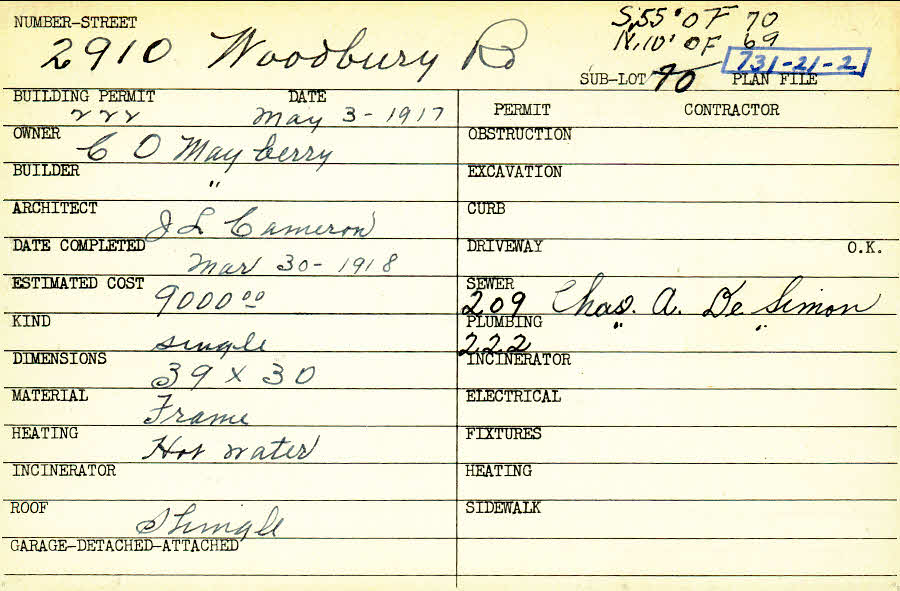 NUMBER-STREET
2910 Woodbury Rd
S. 55' OF 70
N. 10' OF 69
731-21-2
SUB-LOT 70 PLAN FILE
BUILDING PERMIT DATE
222 May 3-1917
OWNER
C O Mayberry
BUILDER
"
ARCHITECT
J L Cameron
DATE COMPLETED
Mar 30-1918
ESTIMATED COST
9000 00
KIND
single
DIMENSIONS
39 x 30
MATERIAL
Frame
HEATING
Hot water
INCINERATOR
ROOF
Shingle
GARAGE-DETACHED-ATTACHED
PERMIT CONTRACTOR
OBSTRUCTION
EXCAVATION
CURB
DRIVEWAY O.K.
SEWER
209 Chas. A. De Simon
PLUMBING
222 " "
INCINERATOR
ELECTRICAL
FIXTURES
HEATING
SIDEWALK